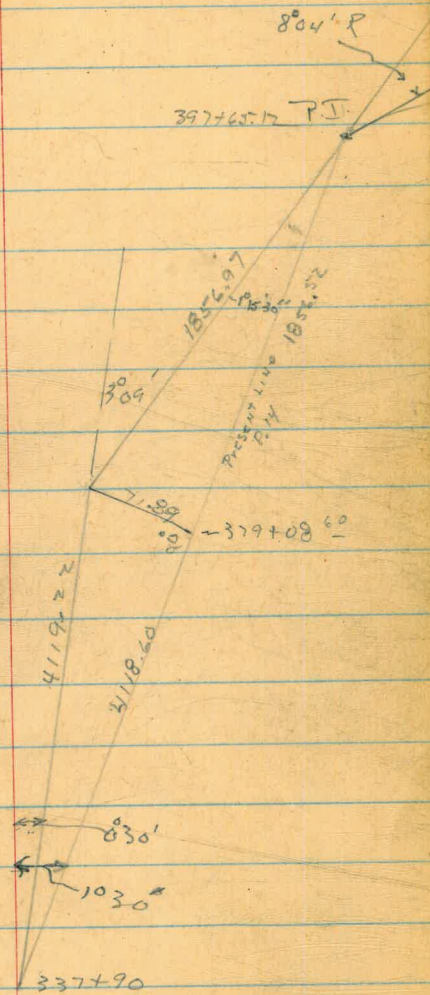 8°04' R
397+65.12 P.I.
1856.97
1856.52
PRESENT LINE
P. 14
3°09'
71.89
90°
379+08 60
4119.22
4118.60
0°30'
1030"
337+90